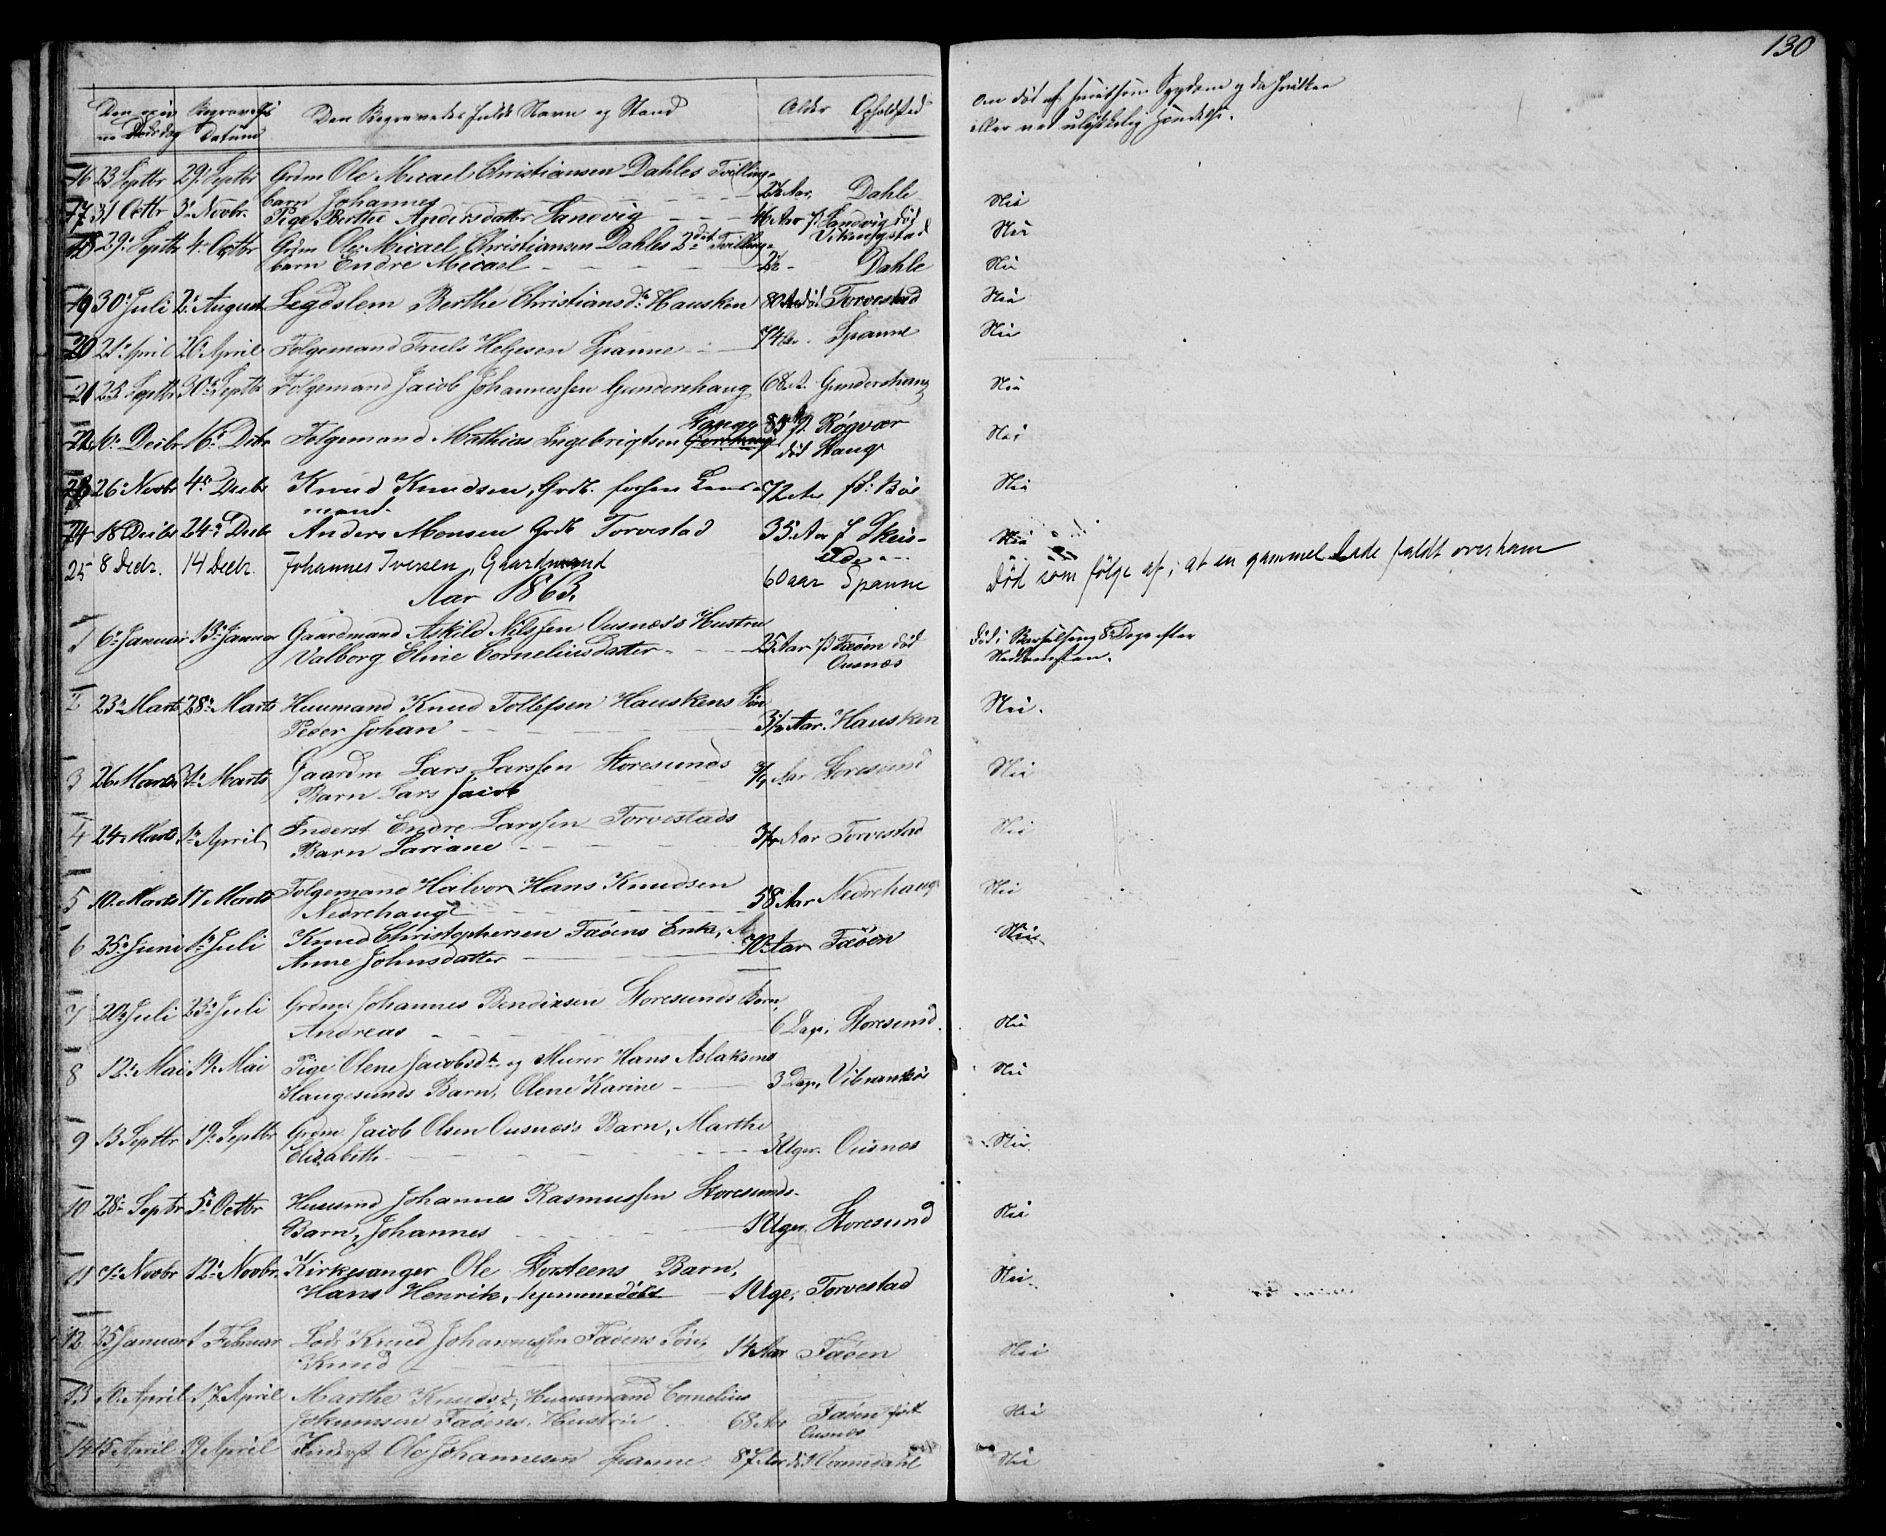 130
Begravelses Datum
Den Begravedes fulde Navn og Stand
Alder Opholdsted
Om død af smitsom Sygdom
eller ved ulykkelig Hændelse.
16 23 Septbr 29 Septbr Grdm Ole Micael Christiansen Dahles Tvillinge-
barn Johannes Aar, Dahle Nei
17 31 Octbr Novbr. Pige Berthe Andersdatter Sandvig 46 Aar f Sandvig død Nei
18 29 Septbr 4 Octbr Grdm Ole Micael Christiansen Dahles 2det Tvillinge-
barn Endre Micael Dahle Nei
19 30 Juli 2 August Legdslem Berthe Christiansdr Hausken 80 Aar død Torvestad Nei
20 21 April 26 April Folgemand Truls Helgesen Spanne 74 Spanne Nei
21 25 Septbr 30 Septbr Folgemand Jacob Johannessen Gundershaug 68 A. Gundershaug Nei
22 Decbr 16 Decbr Folgemand Mathias Ingebrigtsen 85 f. Røgvær Nei
død Haug
23 26 Novbr 4 Decbr Knud Knudsen, Grdb. 72 Aar Nei
mand
24 18 Decbr 24 Decbr Anders Monsen Grdb Torvestad 35 Aar f Nei
25 8 Decbr. 14 Decbr. Johannes Iversen, Gaardmand 60 aar Spanne Død som følge af, at en gammel Lade faldt over ham
Aar 1863.
1 6 Januar 13 Januar Gaardmand Askild Nilssen Ousnæs's Hustru
Valborg Eline Corneliusdatter 25 Aar f Faøen død Død i Barselseng 8 Dage efter
Ousnæs Nedkomsten.
2 23 Marts 28 Marts Huusmand Knud Tollefsen Hauskens Søn
Peder Johan Aar. Hausken Nei.
3 26 Marts 31 Marts Gaardm Lars Larssen Storesunds
Barn Lars Jacob Aar Storesund Nei
4 24 Marts 1 April Inderst Endre Larssen Torvestads
Barn Lariane Aar Torvestad Nei
5 10 Marts 17 Marts Folgemand Halvor Hans Knudsen
Nedrehaug 58 Aar Nedrehaug Nei
6 25 Juni 1 Juli Knud Christophersen Faøens Enke,
Anne Johnsdatter 70 Aar Faøen Nei
7 20 Juli 23 Juli Grdm. Johannes Bendixsen Storesunds Barn,
Andreas 6 Dage, Storesund. Nei
8 12 Mai 19 Mai Pige Olene Jacobsdtr og Murer Hans Aslaksens
Haugesunds Barn, Olene Karine 3 Dage, Nei
9 13 Septbr 19 Septbr Grdm Jacob Olsen Ousnæs's Barn, Marthe
Elisabeth 3 Uger. Ousnes Nei.
10 28 Septbr 5 Octbr Huusmd Johannes Rasmussen Storesunds
Barn, Johannes Uger. Storesund Nei
11 Novbr 12 Novbr. Kirkesanger Ole Storsteens Barn,
Hans Henrik, hjemmedøbt 1 Uge. Torvestad Nei.
12 25 Januar 1 Februar Lods Knud Johannessen Faøens Søn,
Knud 14 Aar Faøen Nei
13 10 April 17 April Marthe Knudsdtr, Huusmand Cornelius
Faøens Hustru 68 Aar Faøen født Nei
Ousnes
14 15 April 19 April Inderst Ole Johannesen Spanne 87 Aar død Nei